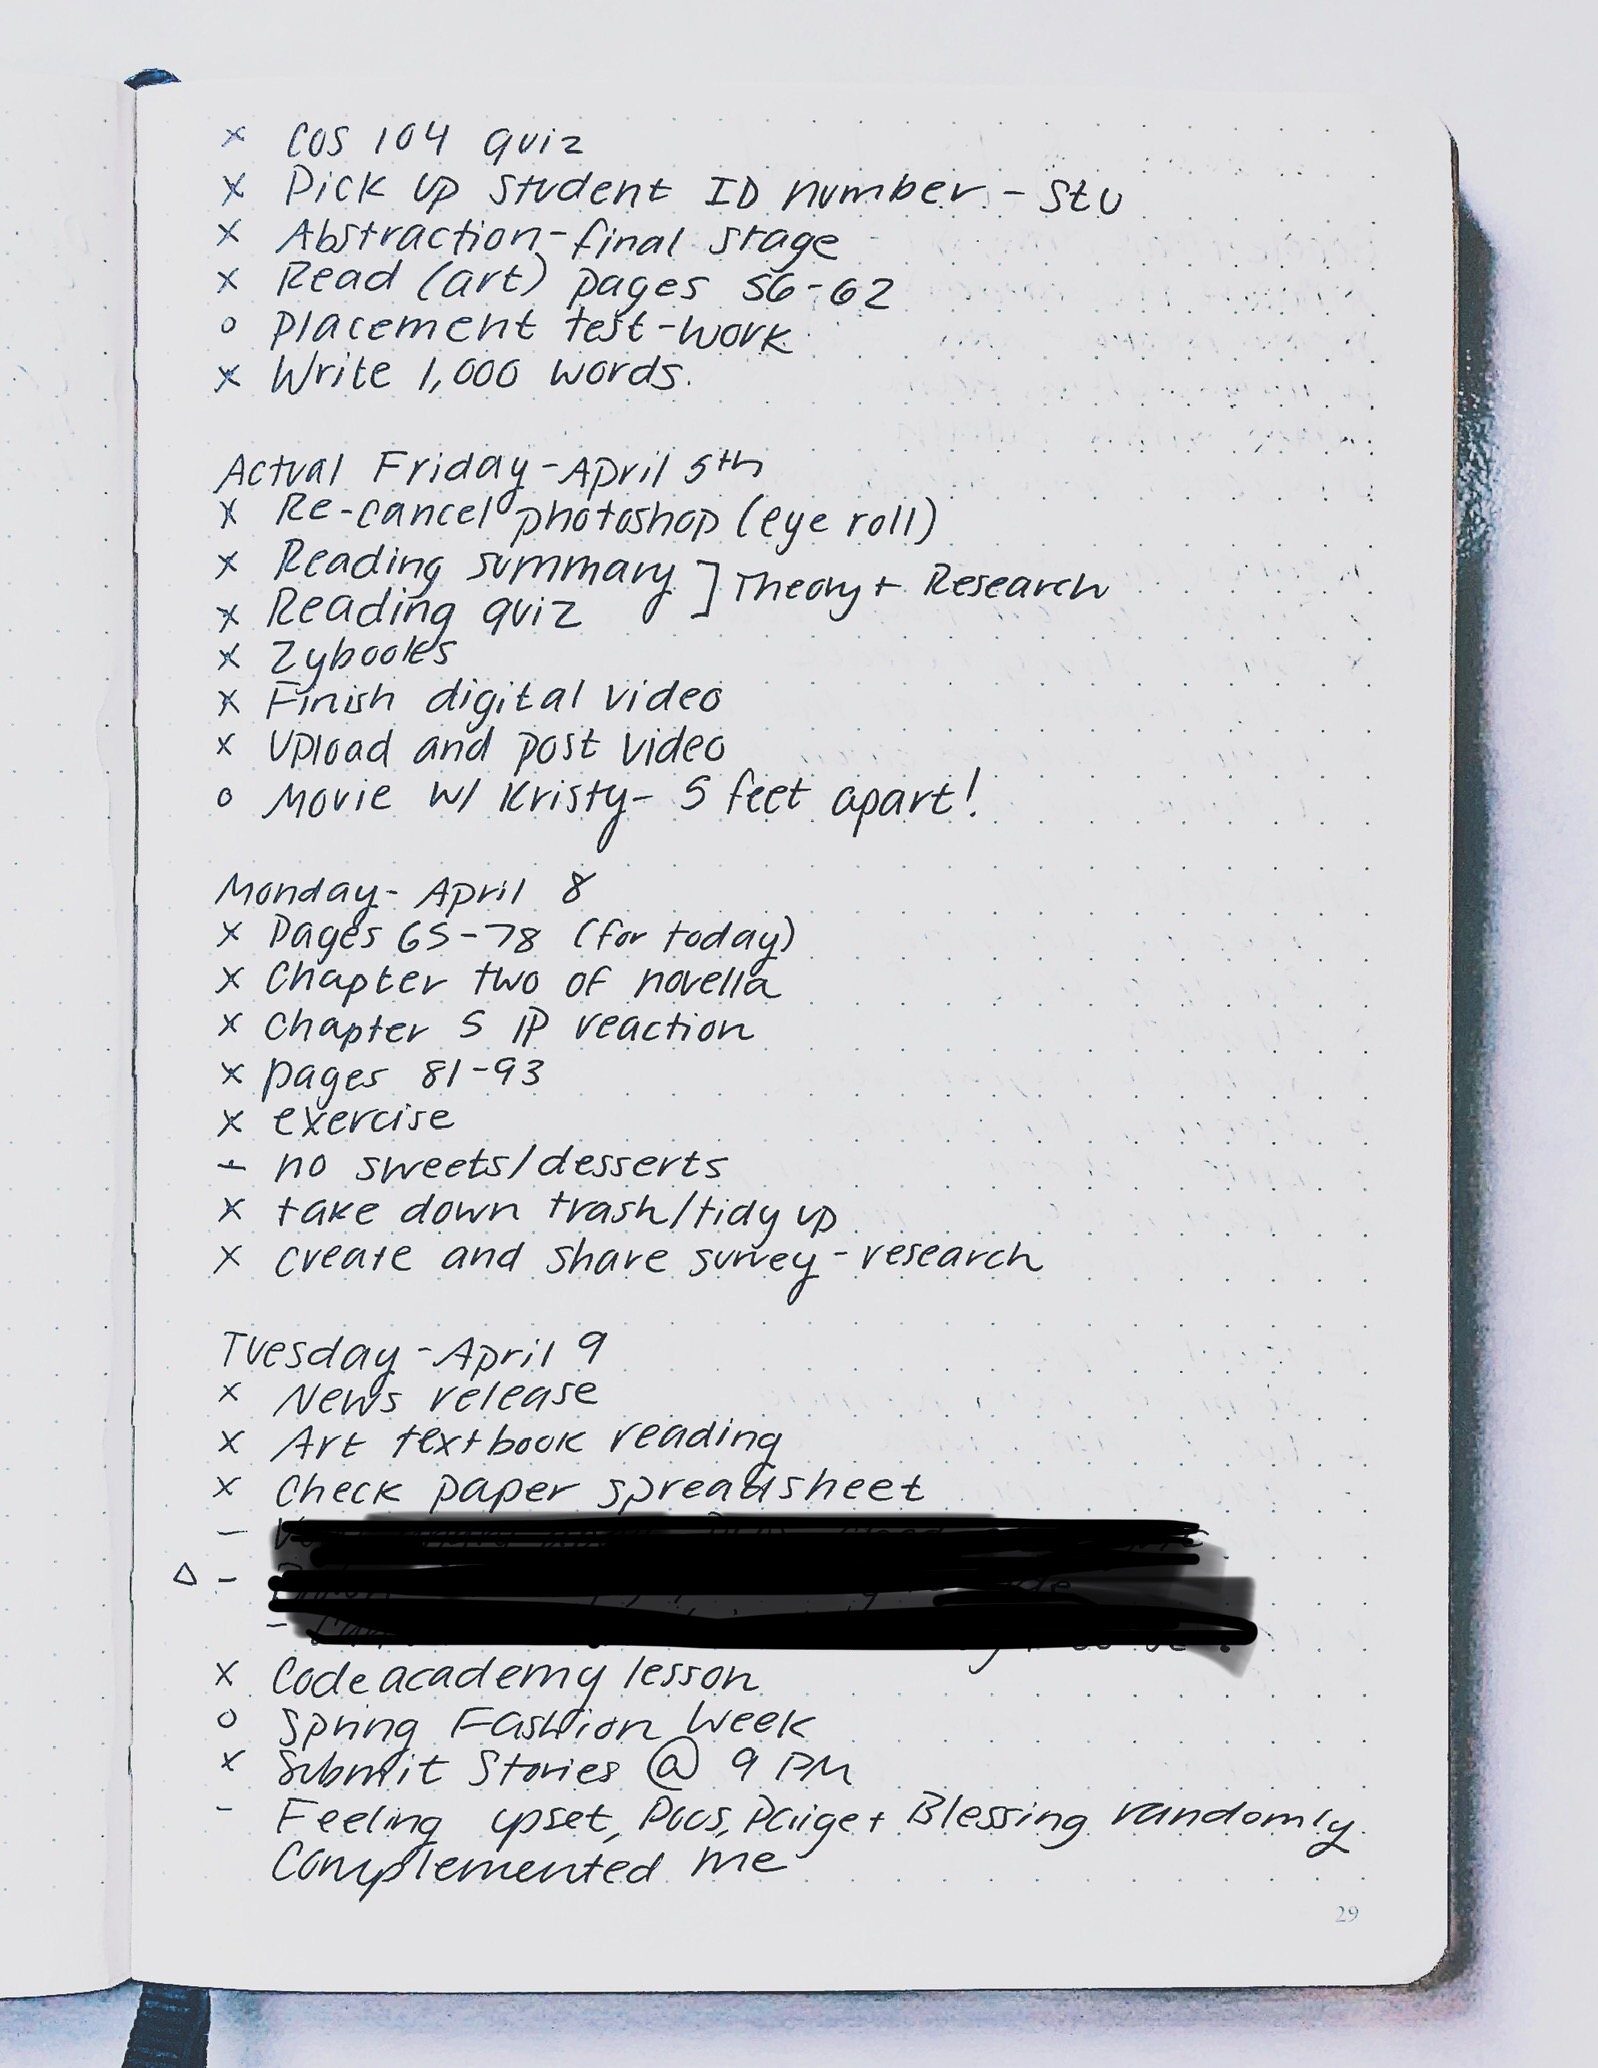 x COS 104 quiz
x Pick up student ID number - Stu
x Abstraction - final stage
x Read (art) pages 56-62
o Placement test - work
x Write 1,000 words.
Actual Friday - April 5th
x Re-cancel photoshop (eye roll)
x Reading summary ] Theory + Research
x Reading quiz
x Zybooks
x Finish digital video
x Upload and post video
o Movie w/ Kristy - 5 feet apart!
Monday - April 8
x Pages 65-78 (for today)
x Chapter two of novella
x Chapter 5 IP reaction
x pages 81-93
x exercise
- no sweets/desserts
x take down trash/tidy up
x create and share survey - research
Tuesday - April 9
x News release
x Art textbook reading
x Check paper spreadsheet
-
△ -
-
x Codeacademy lesson
o Spring Fashion Week
x Submit Stories @ 9 PM
- Feeling upset, Paige + Blessing randomly
Complemented me
29